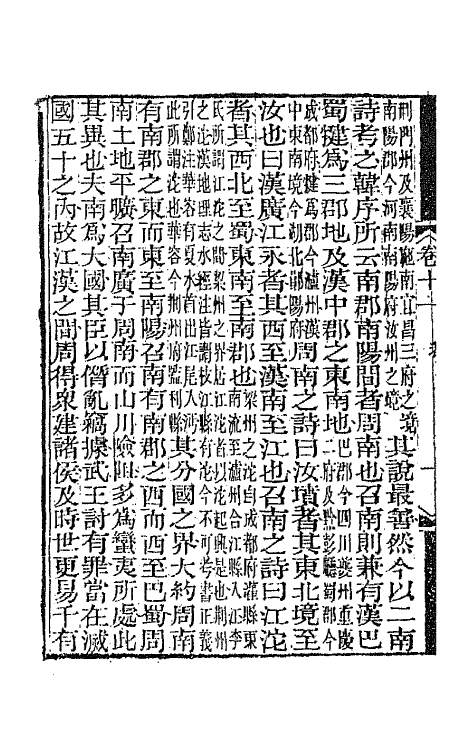 荆門州及襄陽施南宜昌三府之境
南陽郡今河南南陽府汝州之境
其說最善然今以二南
詩考之韓序所云南郡南陽間者周南也召南則兼有漢巴
蜀犍爲三郡地及漢中郡之東南地
巴郡今四川夔州重慶
二府及黔彭廳蜀郡今
成都府犍爲郡今瀘州漢
中東南境今湖北鄖陽府
周南之詩曰汝墳者其東北境至
汝也曰漢廣江永者其西至漢南至江也召南之詩曰江沱
者其西北至蜀東南至南郡也
梁州之沱自成都府灌縣東
南流至瀘州合江縣入江李
氏所謂江沱之間梁州之界江沱者以沱起興是也荆州
之沱漢地理志水經注皆謂枝江縣沱今不可考書正義
引鄭注華容有夏水首出江尾入沔
此所謂沱也華容今荆州府監利縣
其分國之界大約周南
有南郡之東而東至南陽召南有南郡之西而西至巴蜀周
南土地平曠召南廣于周南而山川險阻多爲蠻夷所處此
其異也夫南爲大國其臣以僭亂竊據武王討有罪當在滅
國五十之內故江漢之間周得衆建諸侯及時世更易千有